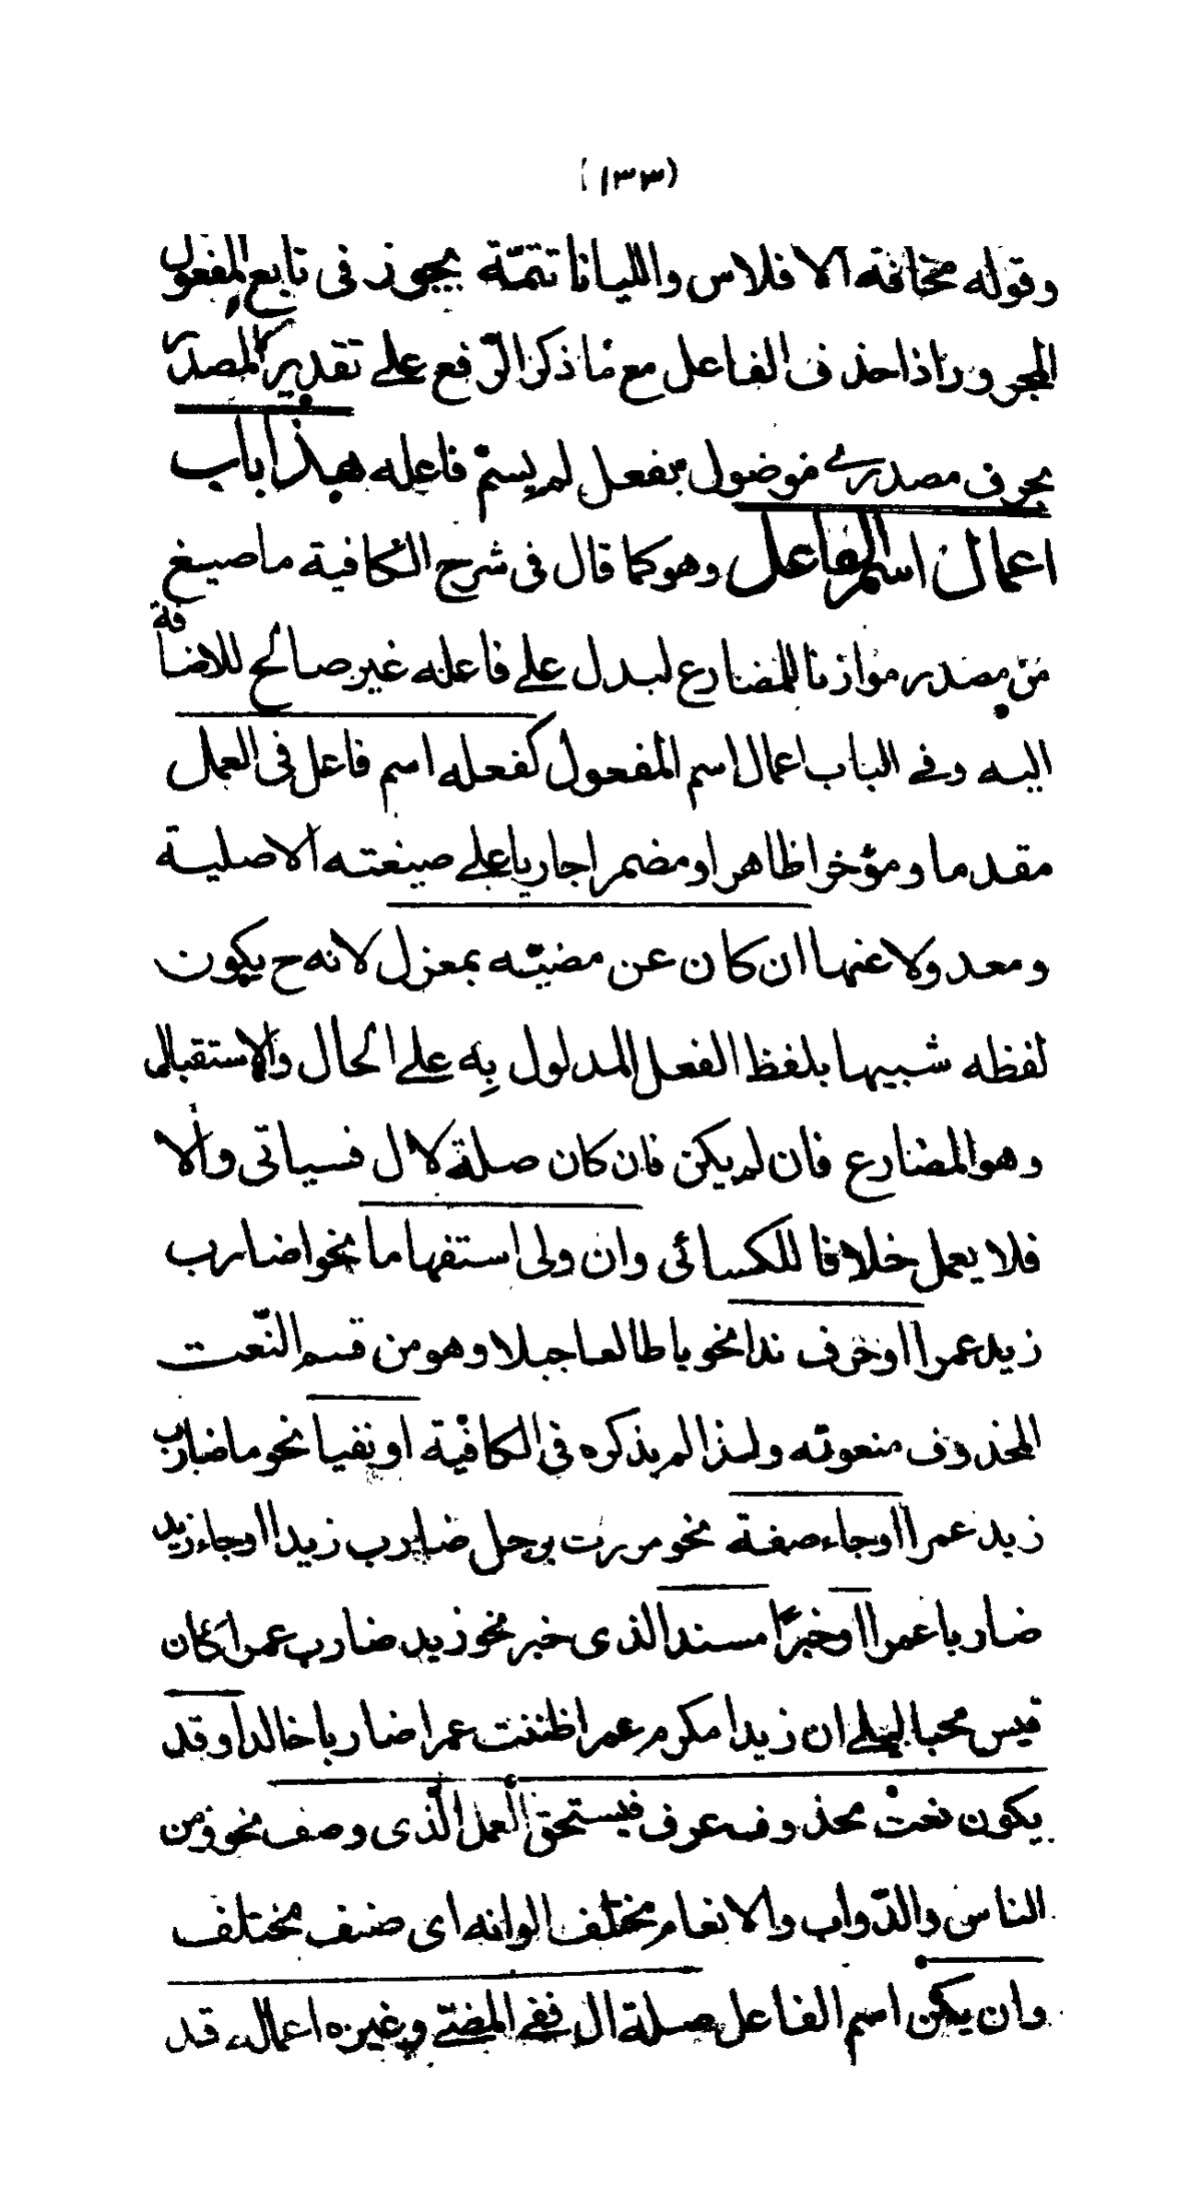 (١٣٣)
وقوله مخافة الافلاس والليانا تتمّة يجوز فى تابع المفعول
المجرور اذا حذف الفاعل مع ما ذكر الرّفع على تقدير المصدر
بحرف مصدرى موصول بفعل لم يسمّ فاعله هذا باب
اعمال اسم الفاعل وهو كما قال فى شرح الكافية ما صيغ
من مصدر موازنا للمضارع ليدل على فاعله غير صالح للاضافة
اليه وفى الباب اعمال اسم المفعول كفعله اسم فاعل فى العمل
مقدما ومؤخرا ظاهرا ومضمرا جاريا على صيغته الاصلية
ومعدولا عنها ان كان عن مضيّه بمعزل لانه ح يكون
لفظه شبيها بلفظ الفعل المدلول به على الحال والاستقبال
وهو المضارع فان لم يكن فان كان صلة لال فسياتى والا
فلا يعمل خلافا للكسائى وان ولى استفهاما نحو اضارب
زيد عمرا او حرف ندا نحو يا طالعا جبلا وهو من قسم النّعت
المحذوف منعوته ولهذا لم يذكره فى الكافية او نفيا نحو ما ضارب
زيد عمرا او جاء صفة نحو مررت برجل ضارب زيدا او جاء زيد
ضاربا عمرا او خبرًا مسندا لذى خبر نحو زيد ضارب عمرا كان
قيس محبا ليلى ان زيدا مكرم عمرا ظننت عمرا ضاربا خالدا وقد
يكون نعت محذوف عرف فيستحق العمل الّذى وصف نحو ومن
الناس والدّواب والانعام مختلف الوانه اى صنف مختلف
وان يكن اسم الفاعل صلة ال ففى المضىّ وغيره اعماله قد